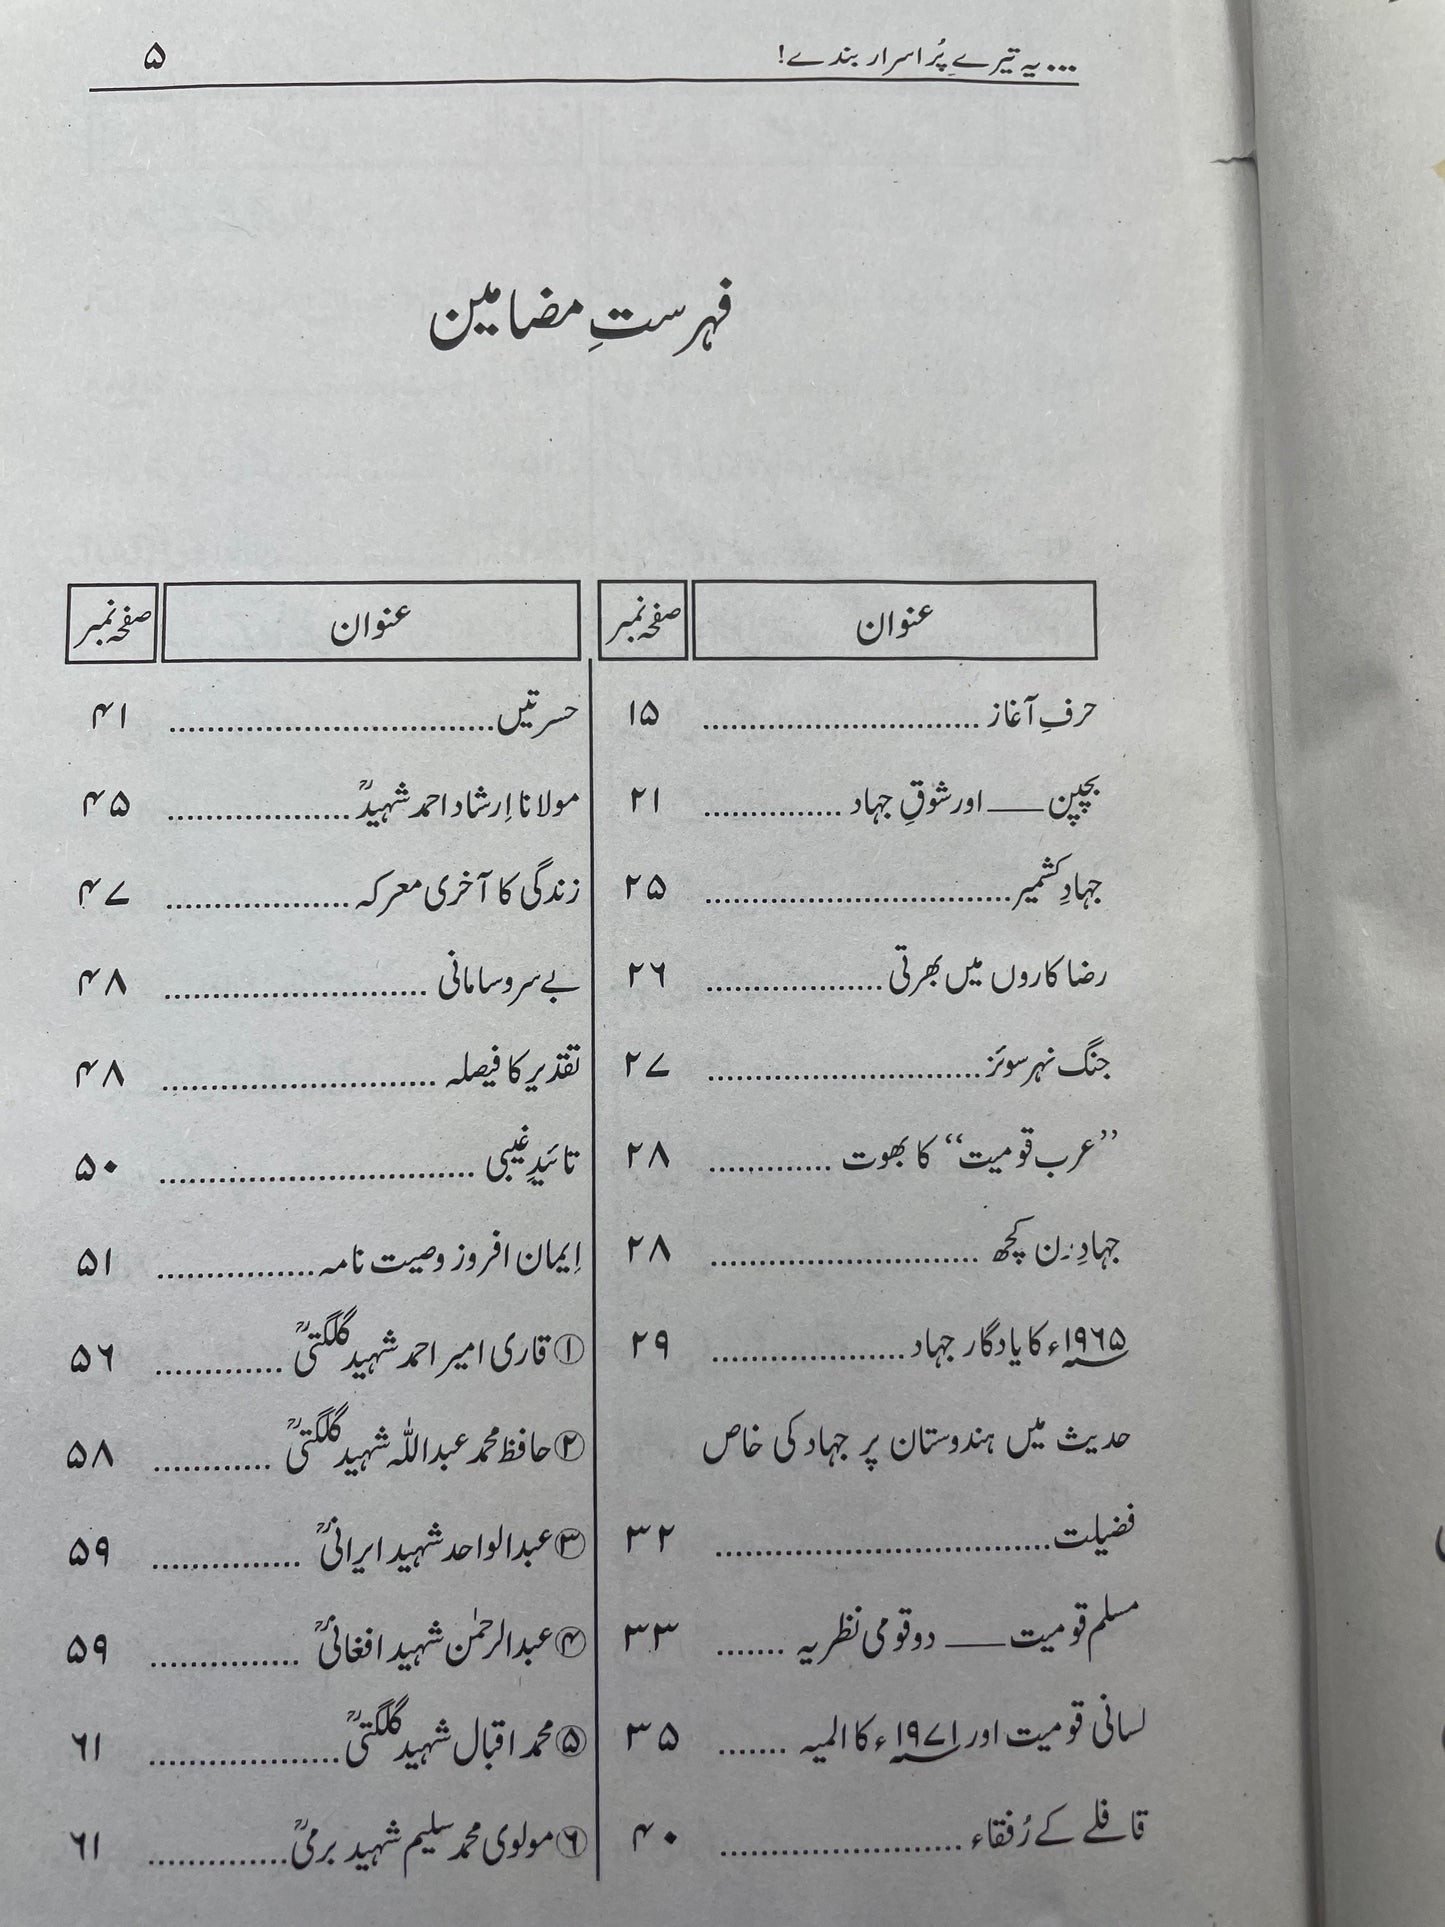 ... یہ تیرے پُر اسرار بندے!
۵
فہرستِ مضامین
عنوان
صفحہ نمبر
حرفِ آغاز .............................. ۱۵
بچپن ___ اور شوقِ جہاد ............... ۲۱
جہادِ کشمیر ................................. ۲۵
رضا کاروں میں بھرتی ................... ۲۶
جنگ نہر سوئز .............................. ۲۷
”عرب قومیت“ کا بھوت ............. ۲۸
جہادِ رَن کچھ ............................. ۲۸
۱۹۶۵ء کا یادگار جہاد ..................... ۲۹
حدیث میں ہندوستان پر جہاد کی خاص
فضیلت .................................... ۳۲
مسلم قومیت ___ دو قومی نظریہ ....... ۳۳
لسانی قومیت اور ۱۹۷۱ء کا المیہ ....... ۳۵
قافلے کے رُفقاء .......................... ۴۰
عنوان
صفحہ نمبر
حسرتیں .................................. ۴۱
مولانا اِرشاد احمد شہیدؒ ................... ۴۵
زندگی کا آخری معرکہ ................... ۴۷
بے سروسامانی ............................ ۴۸
تقدیر کا فیصلہ ............................. ۴۸
تائیدِ غیبی .................................. ۵۰
اِیمان افروز وصیت نامہ ................. ۵۱
① قاری امیر احمد شہید گلگتیؒ ............. ۵۶
② حافظ محمد عبداللہ شہید گلگتیؒ ............ ۵۸
③ عبدالواحد شہید ایرانیؒ ............... ۵۹
④ عبدالرحمٰن شہید افغانیؒ ............... ۵۹
⑤ محمد اقبال شہید گلگتیؒ .................... ۶۱
⑥ مولوی محمد سلیم شہید برمیؒ ............... ۶۱